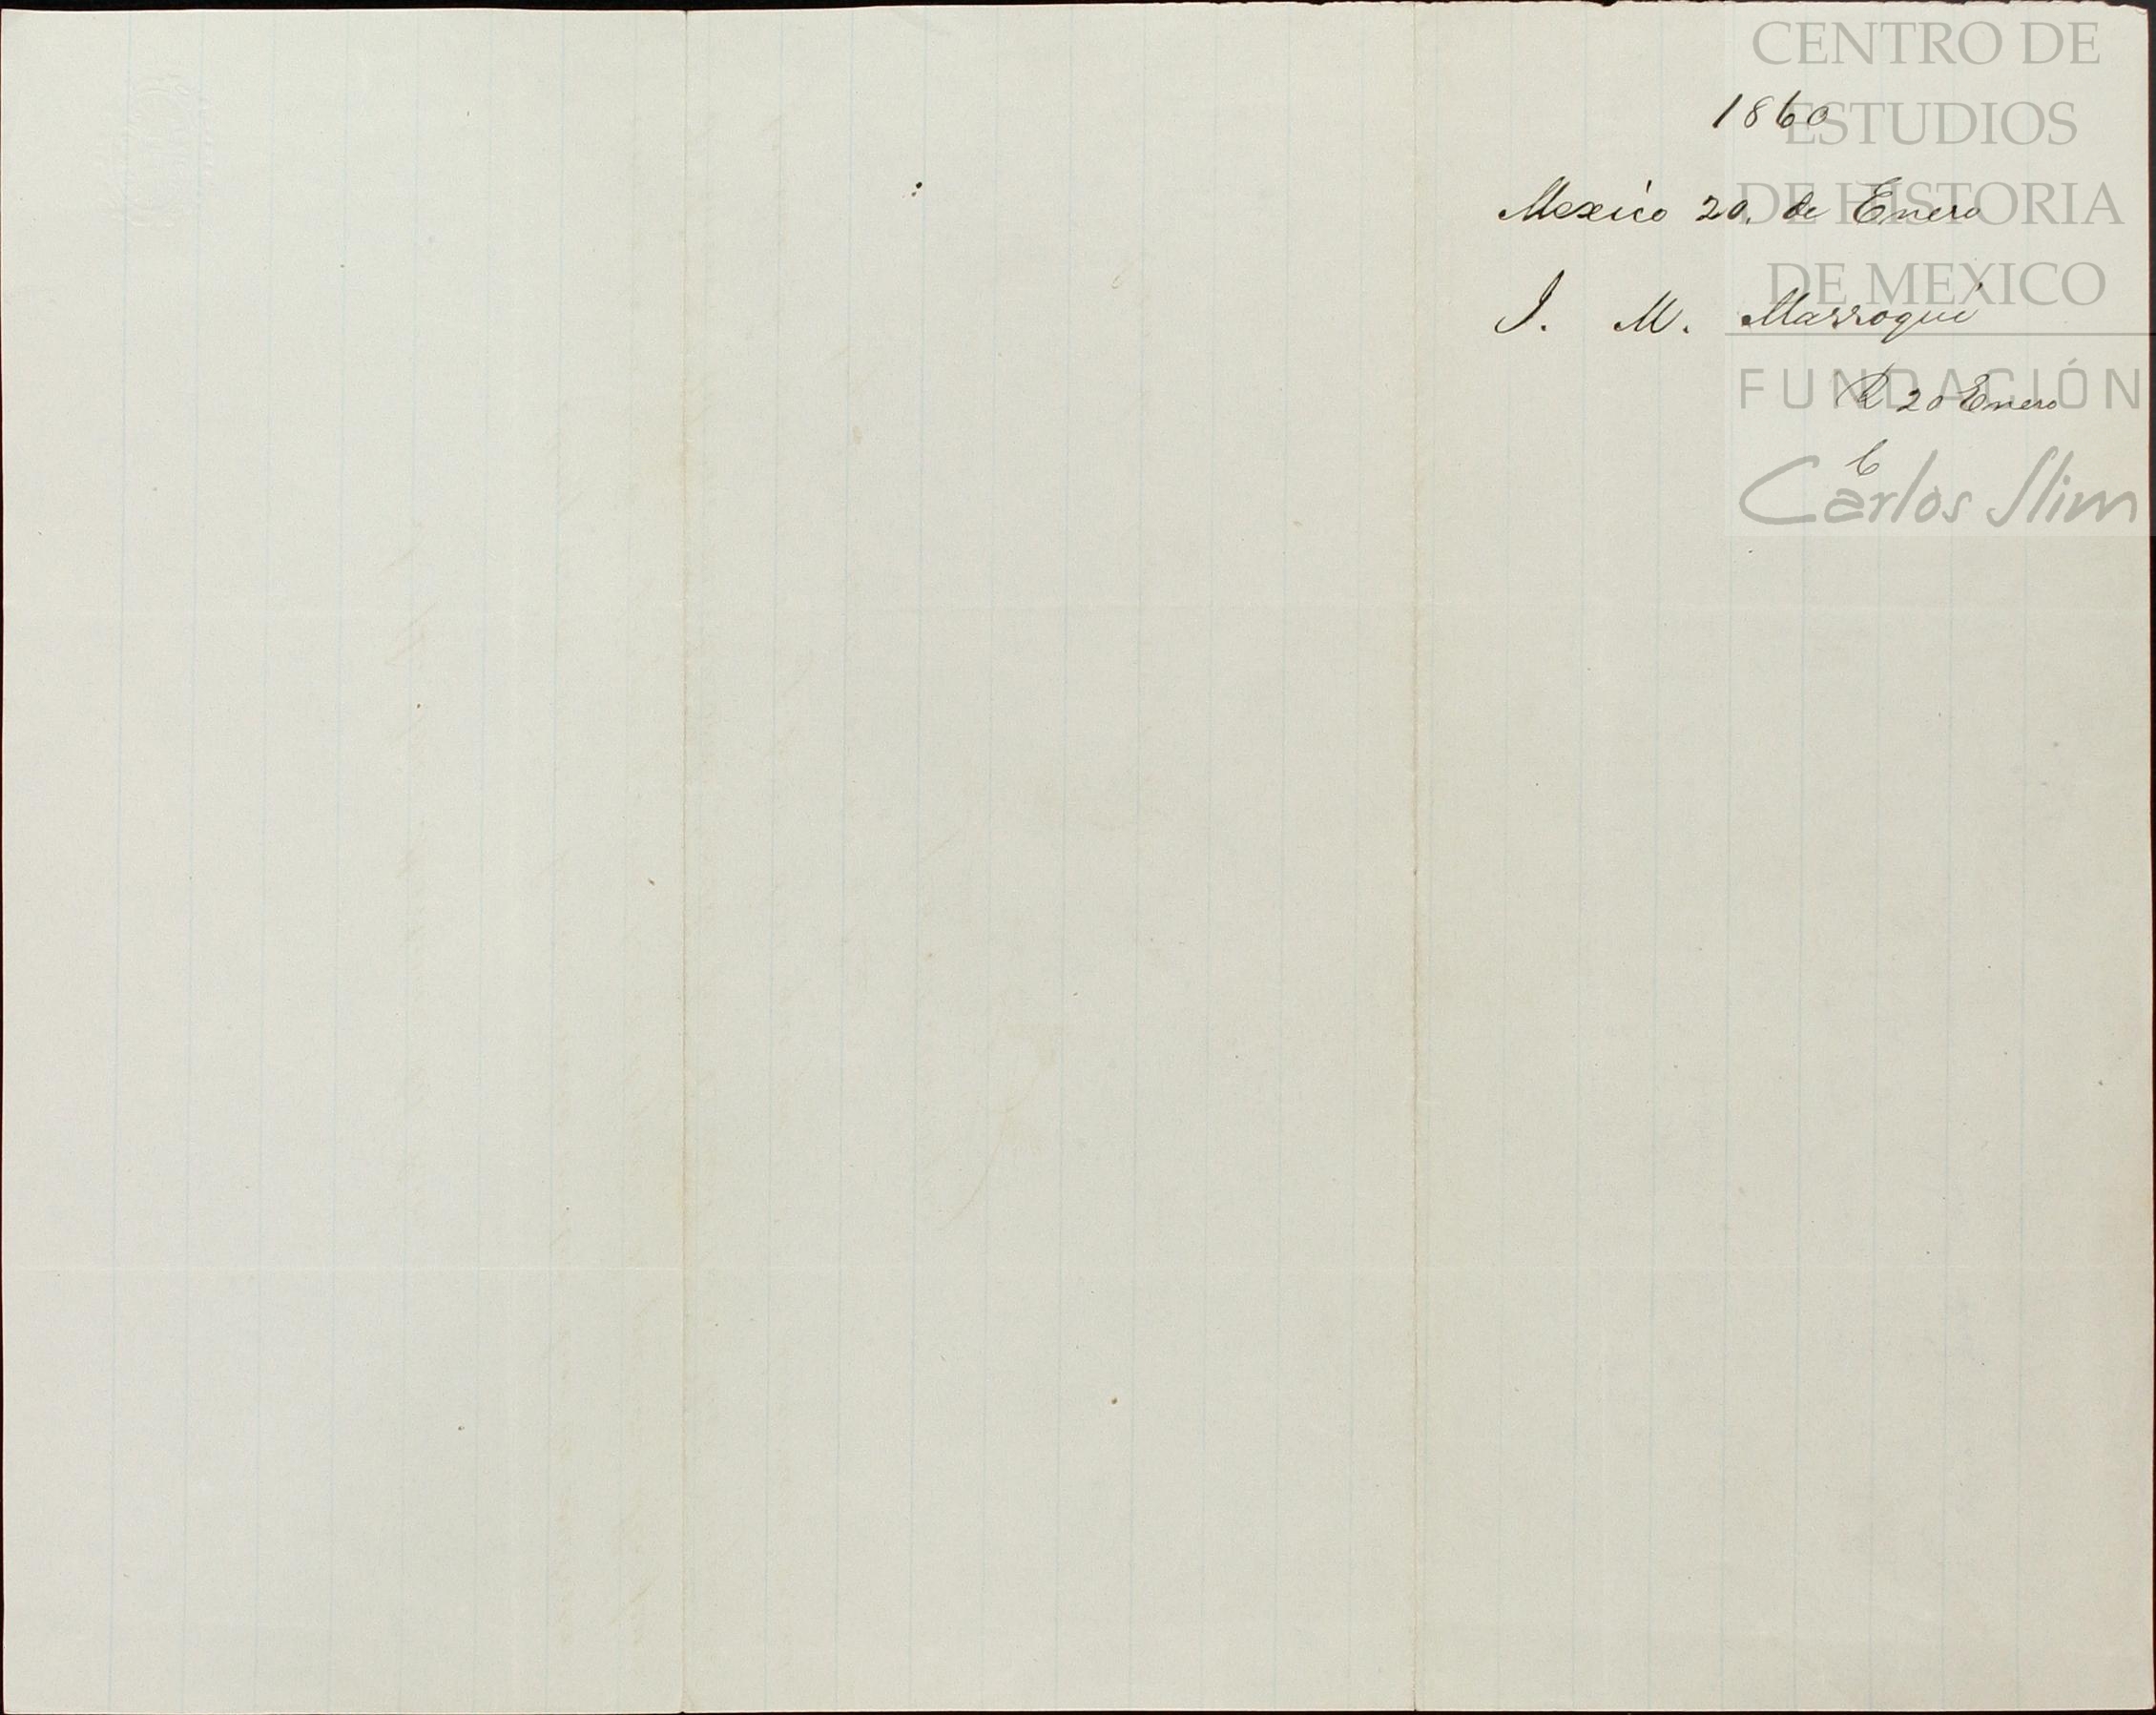 CENTRO DE
ESTUDIOS
DE HISTORIA
DE MEXICO
FUNDACIÓN
Carlos Slim
1860
Mexico 20. de Enero
J. M. Marroqui
R 20 Enero
6